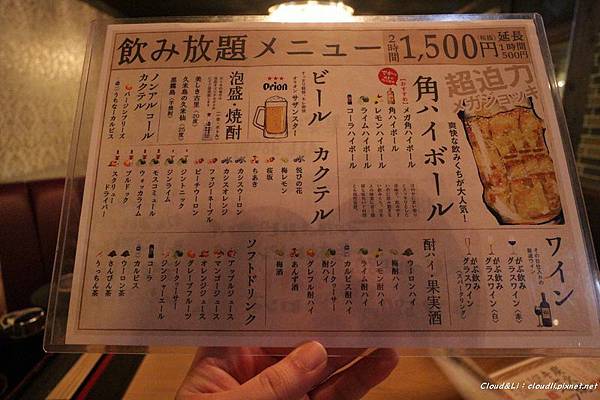 飲み放題メニュー
2時間
1,500円
(税抜)
延長
1時間
500円
超迫力
メガジョッキ
角ハイボール
爽快な飲みくちが大人気!
(おすすめ)
メガ角ハイボール
角ハイボール
レモンハイボール
ライムハイボール
コーラハイボール
ビール
Orion
オリオン サザンスター
泡盛・焼酎
美しき古里 (20度)
久米島の久米仙 (25度)
黒霧島 (芋焼酎)
ノンアルコール
カクテル
バージンブリーズ
うちなーカルピス
カクテル
悦びの花
梅レモン
桜坂
ちあき
カシスウーロン
カシスオレンジ
ファジーネーブル
ピーチウーロン
ジントニック
ジンライム
モスコミュール
ウォッカライム
ブルドック
スクリュードライバー
ワイン
がぶ飲み
グラスワイン (赤)
がぶ飲み
グラスワイン (白)
がぶ飲み
グラスワイン
(スパークリング)
酎ハイ・果実酒
ウーロンハイ
梅酎ハイ
レモン酎ハイ
ライム酎ハイ
カルピス酎ハイ
シークワーサー
酎ハイ
グレフル酎ハイ
あんず酒
梅酒
ソフトドリンク
アップルジュース
マンゴージュース
オレンジジュース
グレープフルーツ
シークワーサー
ジンジャーエール
コーラ
カルピス
ウーロン茶
さんぴん茶
うっちん茶
Cloud&Li:cloudli.pixnet.net